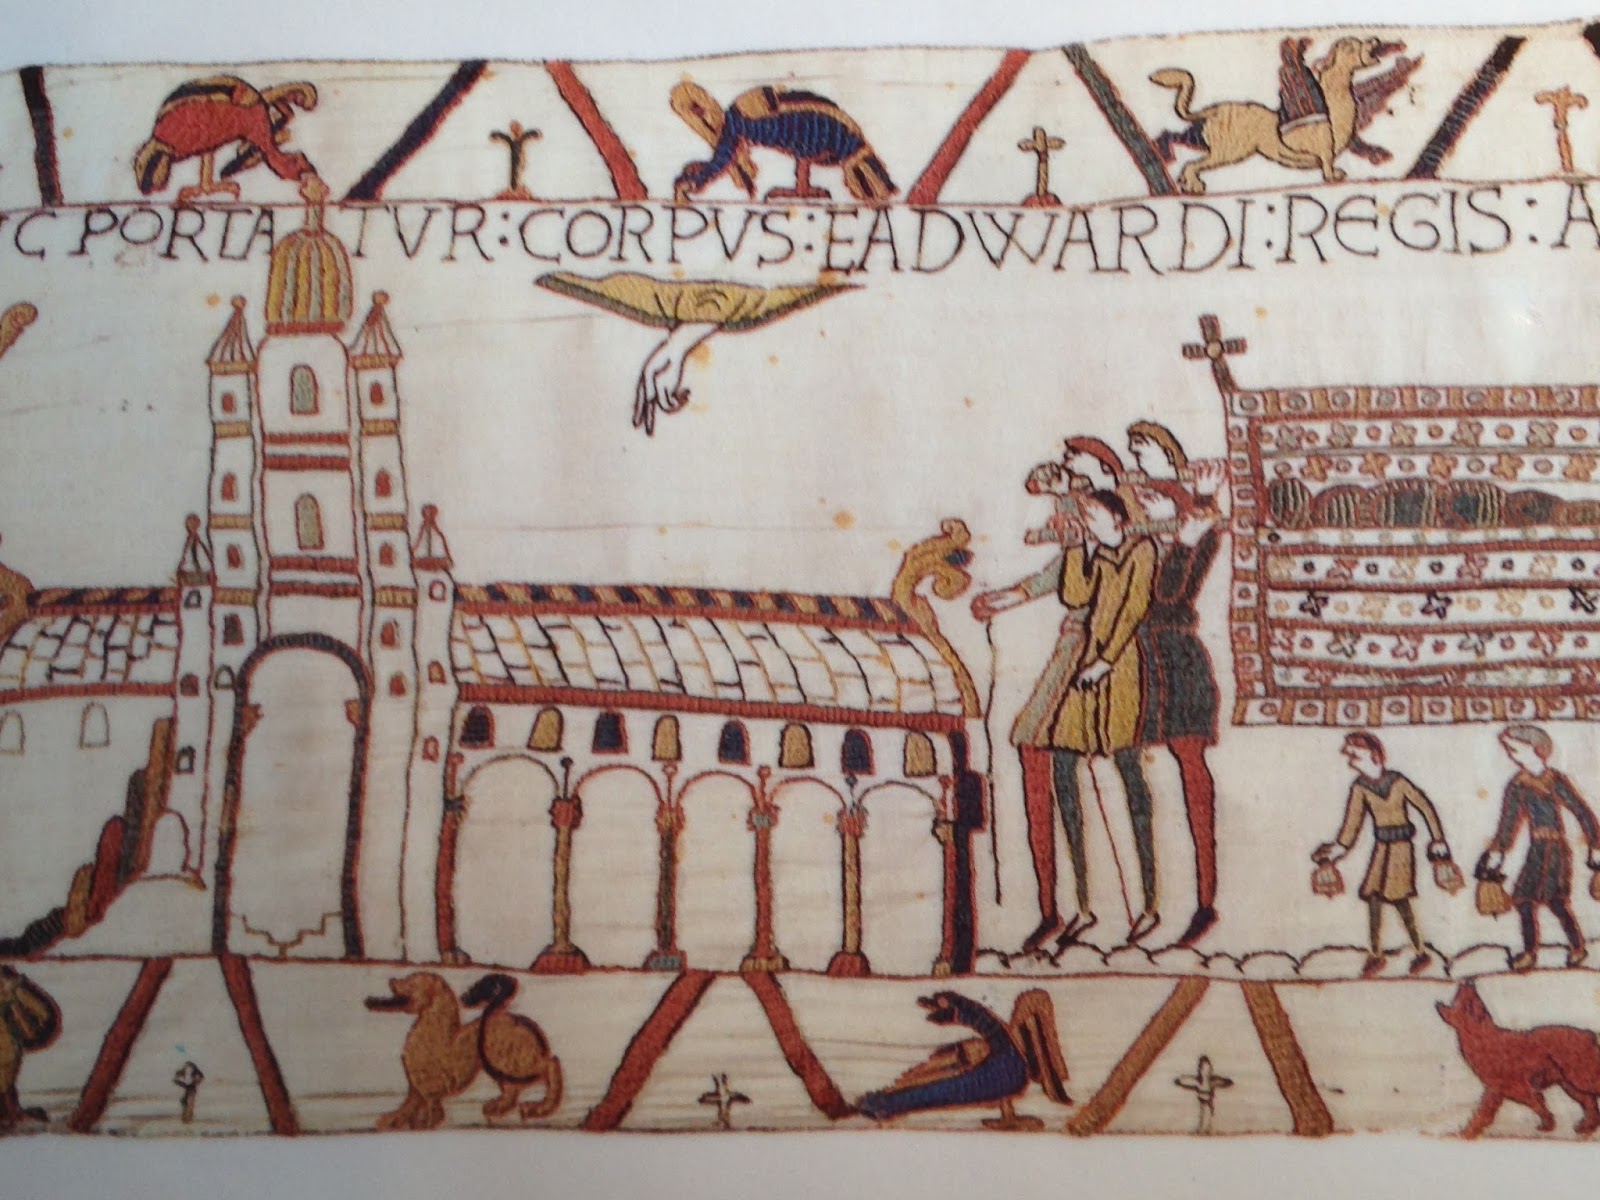 C PORTA TVR : CORPVS : EADWARDI : REGIS : A